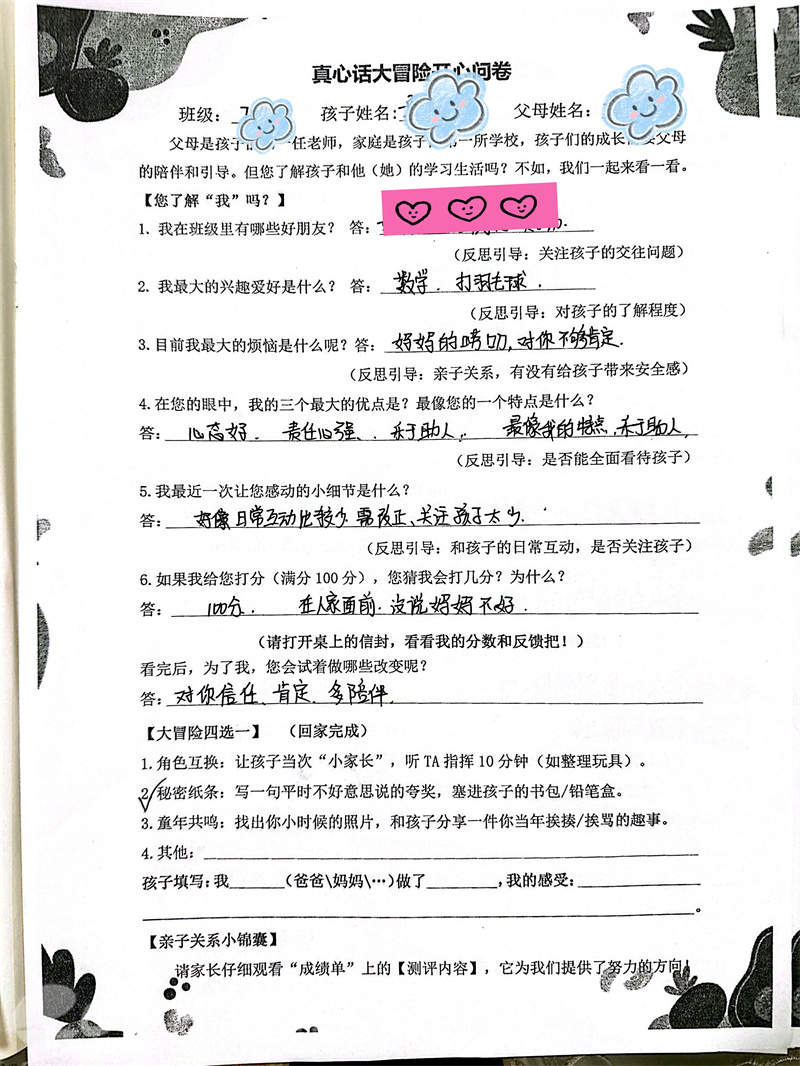 真心话大冒险开心问卷
班级： 孩子姓名： 父母姓名：
父母是孩子 一任老师，家庭是孩子 一所学校，孩子们的成长 父母
的陪伴和引导。但您了解孩子和他（她）的学习生活吗？不如，我们一起来看一看。
【您了解“我”吗？】
1. 我在班级里有哪些好朋友？ 答：
（反思引导：关注孩子的交往问题）
2. 我最大的兴趣爱好是什么？ 答： 数学、打羽毛球．
（反思引导：对孩子的了解程度）
3.目前我最大的烦恼是什么呢？答： 妈妈的唠叨，对你不够肯定．
（反思引导：亲子关系，有没有给孩子带来安全感）
4.在您的眼中，我的三个最大的优点是？最像您的一个特点是什么？
答： 心态好． 责任心强、乐于助人．． 最像我的特点，乐于助人，
（反思引导：是否能全面看待孩子）
5.我最近一次让您感动的小细节是什么？
答： 好像日常互动比较少．需改正、关注孩子太少．
（反思引导：和孩子的日常互动，是否关注孩子）
6.如果我给您打分（满分100分），您猜我会打几分？为什么？
答： 100分． 在人家面前．没说妈妈不好．
（请打开桌上的信封，看看我的分数和反馈把！）
看完后，为了我，您会试着做哪些改变呢？
答：对你信任、肯定、多陪伴．
【大冒险四选一】 （回家完成）
1.角色互换：让孩子当次“小家长”，听TA指挥10分钟（如整理玩具）。
2✓秘密纸条：写一句平时不好意思说的夸奖，塞进孩子的书包/铅笔盒。
3.童年共鸣：找出你小时候的照片，和孩子分享一件你当年挨揍/挨骂的趣事。
4.其他：
孩子填写：我______（爸爸\妈妈\…）做了________，我的感受：
。
【亲子关系小锦囊】
请家长仔细观看“成绩单”上的【测评内容】，它为我们提供了努力的方向！